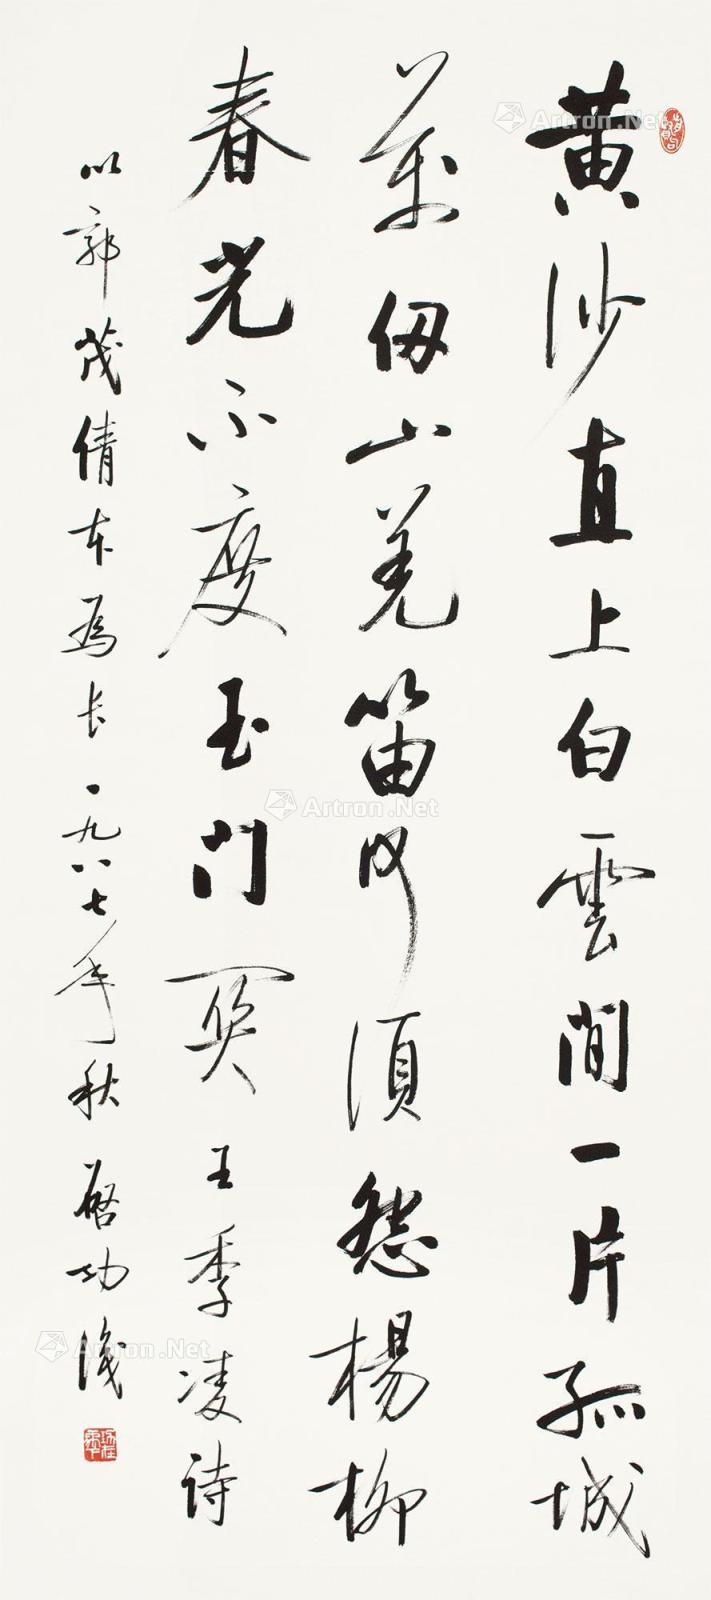 黄沙直上白雲間一片孤城
萬仞山羌笛何須怨楊柳
春光不度玉门关王季凌诗
以郭茂倩本為长一九八七年秋啓功識
Artron.Net
Artron.Net
Artron.Net